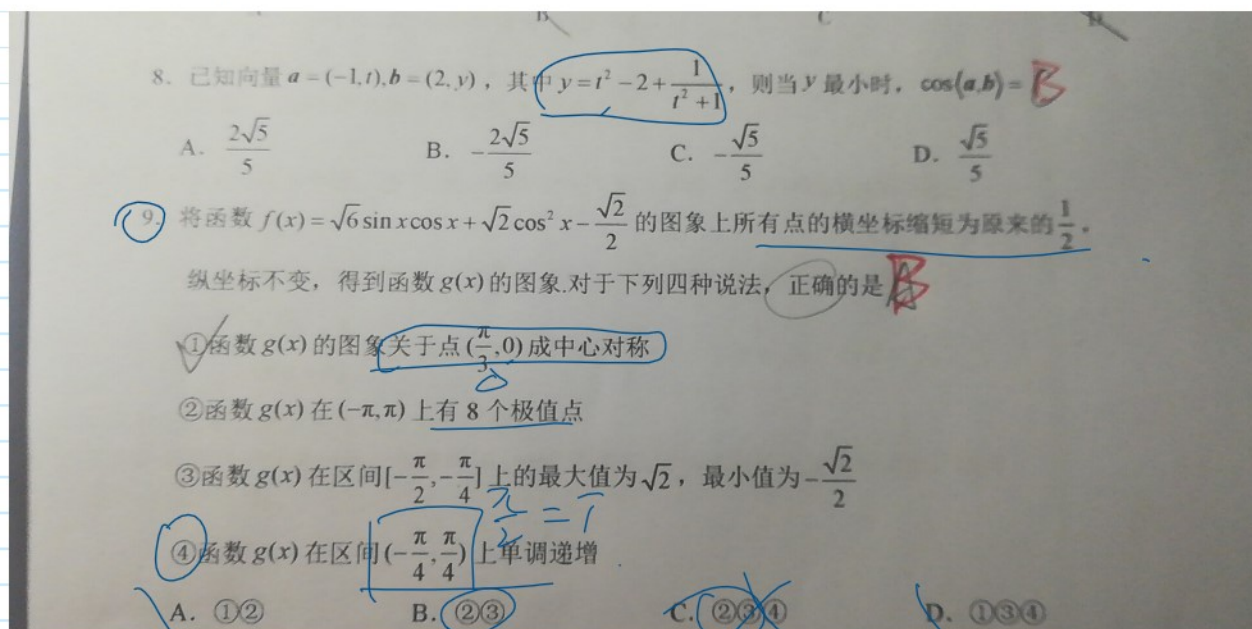 8. 已知向量 a = (-1, t), b = (2, y)，其中 y = t² - 2 + 1/(t² + 1)，则当 y 最小时，cos⟨a, b⟩ = B
A. 2√5/5 B. -2√5/5 C. -√5/5 D. √5/5
9. 将函数 f(x) = √6 sin x cos x + √2 cos² x - √2/2 的图象上所有点的横坐标缩短为原来的 1/2，
纵坐标不变，得到函数 g(x) 的图象.对于下列四种说法，正确的是 B
①函数 g(x) 的图象关于点 (π/3, 0) 成中心对称
②函数 g(x) 在 (-π, π) 上有 8 个极值点
③函数 g(x) 在区间 [-π/2, -π/4] 上的最大值为 √2，最小值为 -√2/2
π/2 = T
④函数 g(x) 在区间 (-π/4, π/4) 上单调递增
A. ①② B. ②③ C. ②③④ D. ①③④